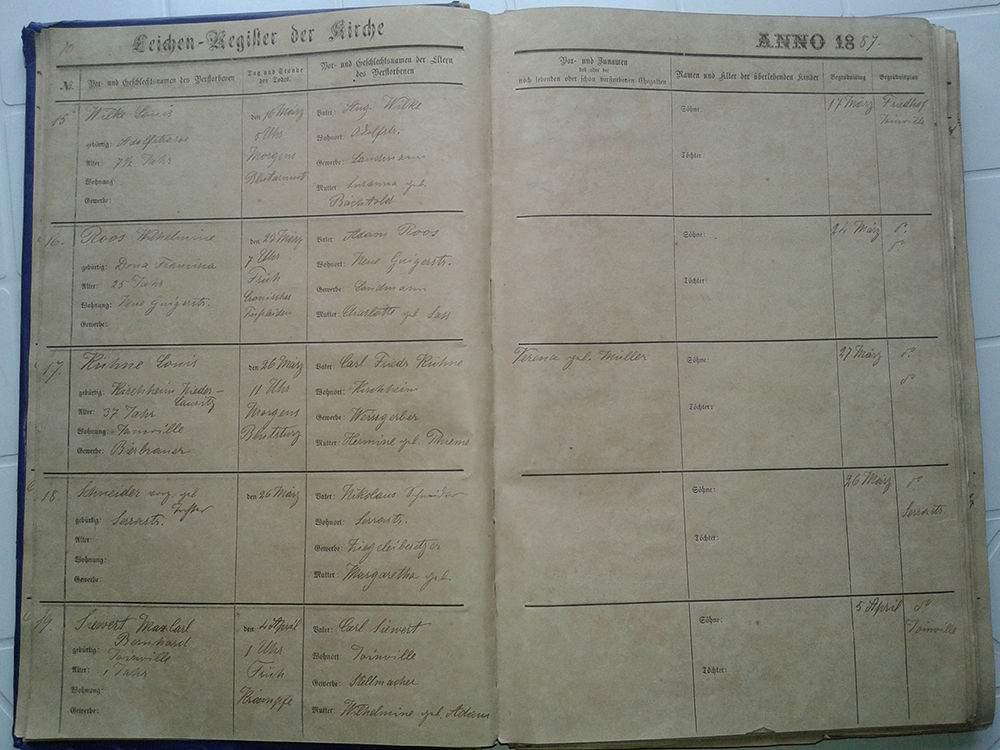 10
Leichen-Register der Kirche
ANNO 1887.
№.
Vor- und Geschlechtsnamen des Verstorbenen
Tag und Stunde des Todes.
Vor- und Geschlechtsnamen der Eltern des Verstorbenen
Vor- und Zunamen
des oder der
noch lebenden oder schon verstorbenen Ehegatten
Namen und Alter der überlebenden Kinder
Begräbnißtag
Begräbnißplatz
15
Wilke Louis
den 16 März
Vater: Aug. Wilke
Söhne:
17 März
Friedhof
Joinville
gebürtig:
5 Uhr
Wohnort:
Alter: 7½ Jahr
Morgens
Gewerbe: Landmann
Töchter:
Wohnung:
Mutter: Susanna geb.
Gewerbe:
Bächtold
16.
Roos Wilhelmine
den 23 März
Vater: Adam Roos
Söhne:
24 März
do
do
gebürtig: Dona Francisca
7 Uhr
Wohnort: Neue
Alter: 25 Jahr
Früh
Gewerbe: Landmann
Töchter:
Wohnung: Neue
Mutter: Charlotte geb. Sass
Gewerbe:
17.
Kühne Louis
den 26 März
Vater: Carl Friedr Kühne
Terena geb. Müller
Söhne:
27 März
do
do
gebürtig: Kirchheim Nieder-
Lausitz
11 Uhr
Wohnort: Kirchheim
Alter: 37 Jahr
Morgens
Gewerbe: Weissgerber
Töchter:
Wohnung: Joinville
Blutsturz
Mutter: Hermine geb. Thieme
Gewerbe: Bierbrauer
18
Schneider geb
den 26 März
Vater: Nikolaus Schneider
Söhne:
26 März
do
Serrastr.
gebürtig: Serrastr.
Wohnort: Serrastr.
Alter:
Gewerbe: Ziegeleibesitzer
Töchter:
Wohnung:
Mutter: Margaretha geb.
Gewerbe:
19
Siewert Max Carl
Bernhard
den 4 April
Vater: Carl Siewert
Söhne:
5 April
do
Joinville
gebürtig: Joinville
1 Uhr
Wohnort: Joinville
Alter: 1 Jahr
Früh
Gewerbe: Stellmacher
Töchter:
Wohnung:
Krämpfe
Mutter: Wilhelmine geb. Adam
Gewerbe: